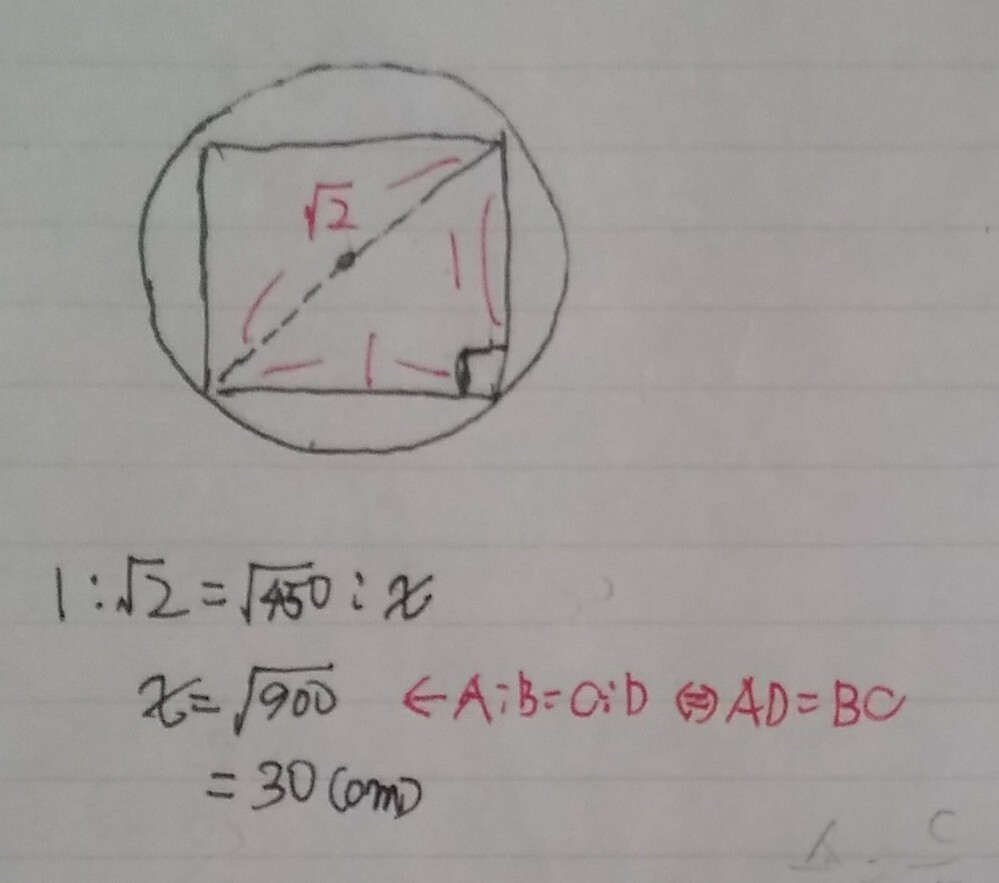 √2
1
1
1:√2=√450:x
x=√900 ←A:B=C:D ⇔ AD=BC
=30(cm)